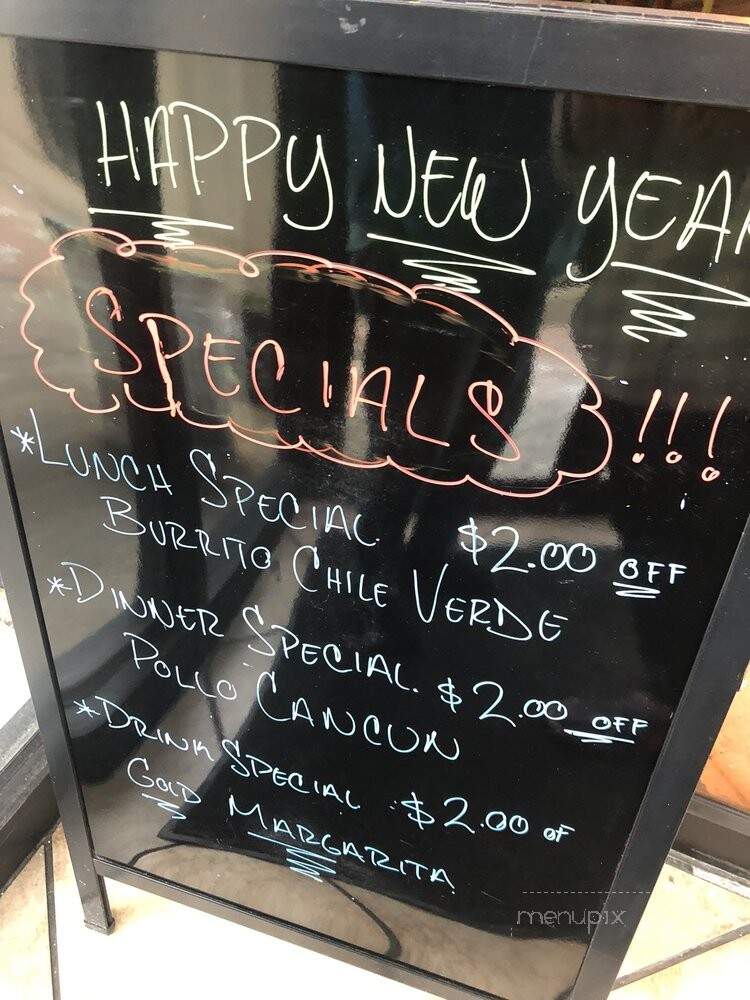 HAPPY NEW YEA
SPECIALS !!!
*LUNCH SPECIAL $2.00 OFF
BURRITO CHILE VERDE
*DINNER SPECIAL. $2.00 OFF
POLLO CANCUN
*DRINK SPECIAL $2.00 OF
GOLD MARGARITA
menupix